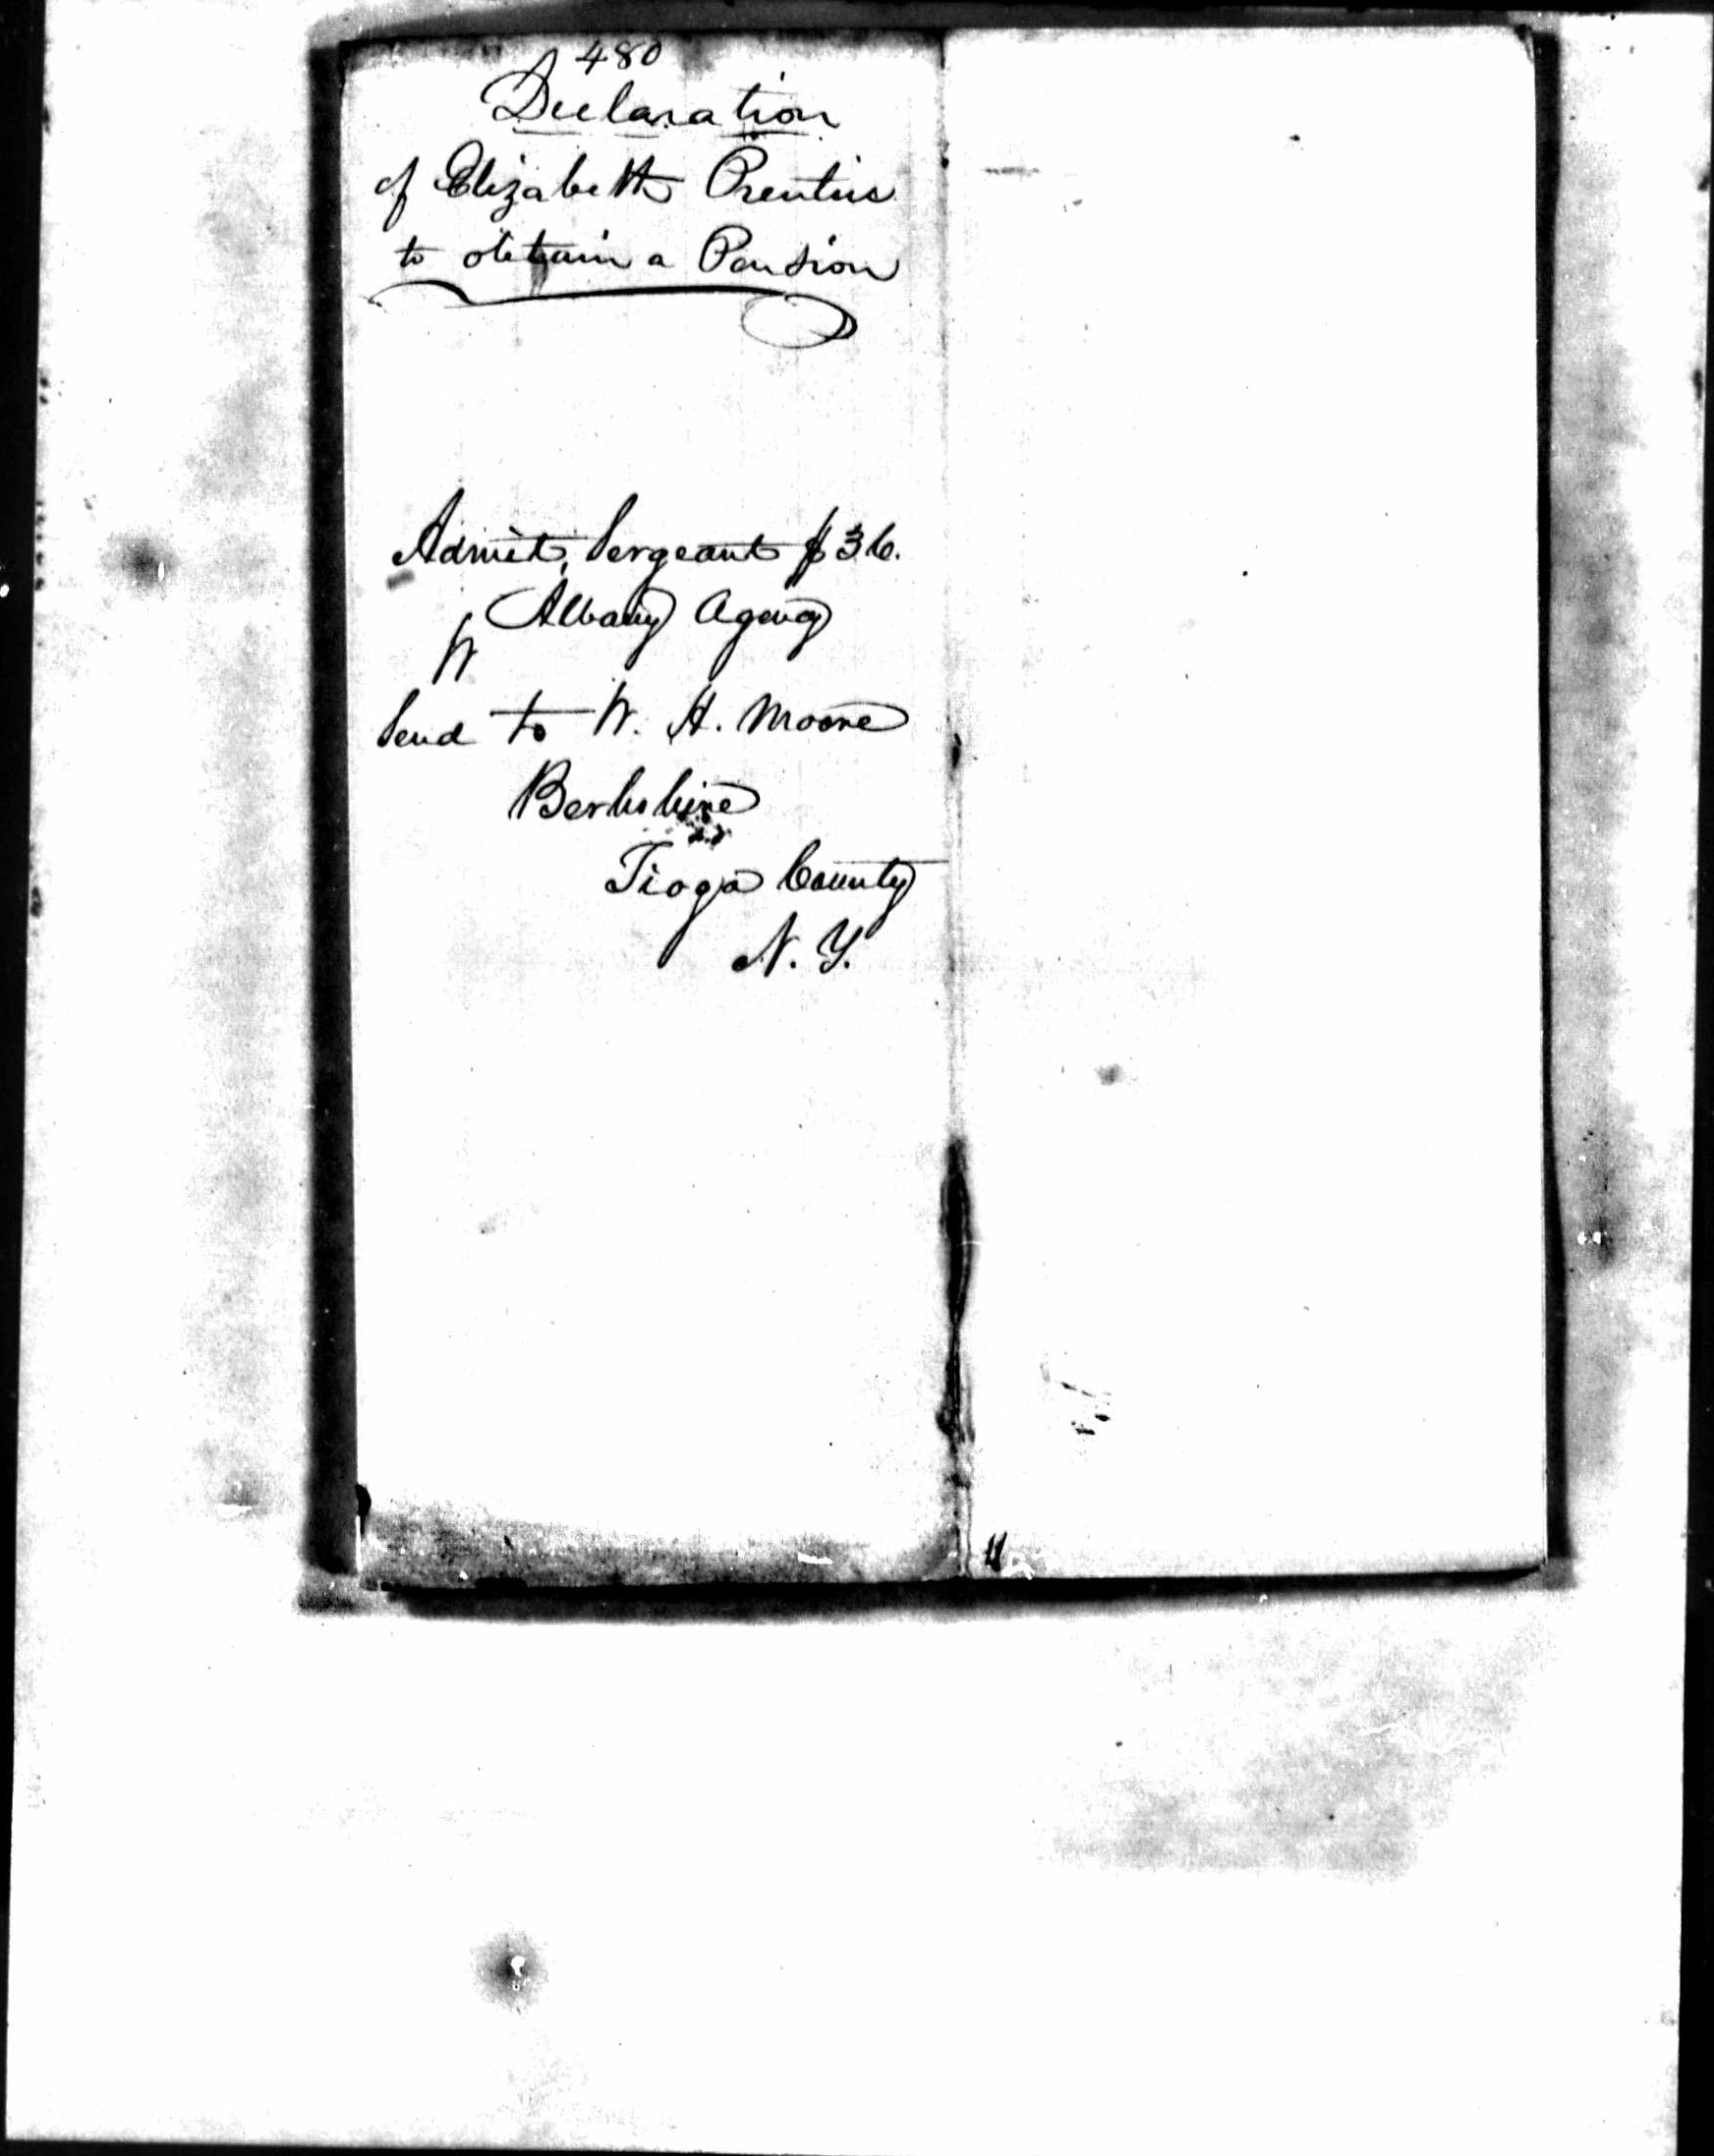 480
Declaration
of Elizabeth Prentiss
to obtain a Pension
Admit, Sergeant $36.
Albany Agency
W
Send to W. H. Moore
Berkshire
Tioga County
N. Y.